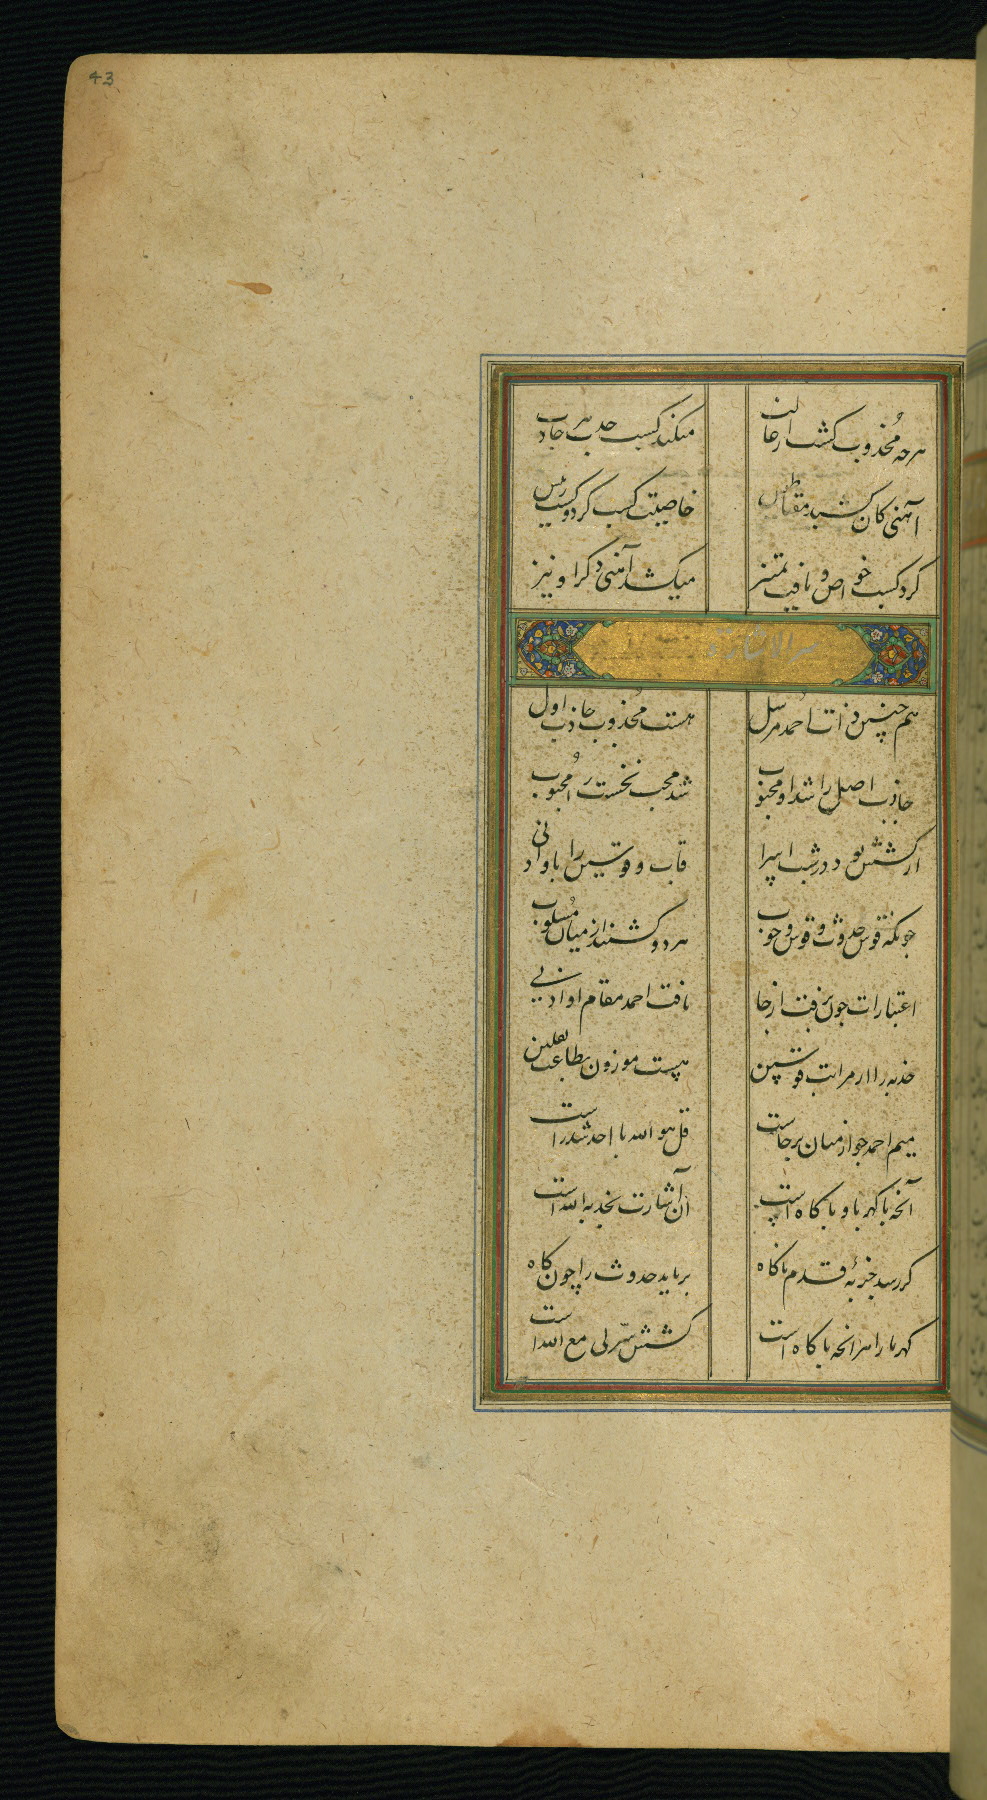 43
هرچه مجذوب گشت از جانب میکند کسب جذب هر جاذب
آهنی کان کشید مقناطیس خاصیت کسب کرد و گشت رئیس
کرد کسب خواص و یافت تمیز میکشد آهنی دگر او نیز
سر الاشارة
هم چنین ذات احمد مرسل هست مجذوب جاذب اول
جاذب اصل را شد او محبوب شد محب نخست را محبوب
از کشش بود در شب اسرا قاب و قوسین را باو ادنی
چونکه قوس حدوث و قوس وجوب هر دو گشتند از میان مسلوب
اعتبارات چون برفت از جا یافت احمد مقام او ادنی
جذبه را از مراتب قوسین هست موزون
میم احمد چو از میان برخاست قل هو الله با احد شد راست
آنچه با کهربا و با کاه است آن اشارت بجذبه الله است
گر رسد جذبهٔ قدم ناگاه برباید حدوث را چون کاه
کهربا را هر آنچه با کاه است کشش سرّ لی مع الله است